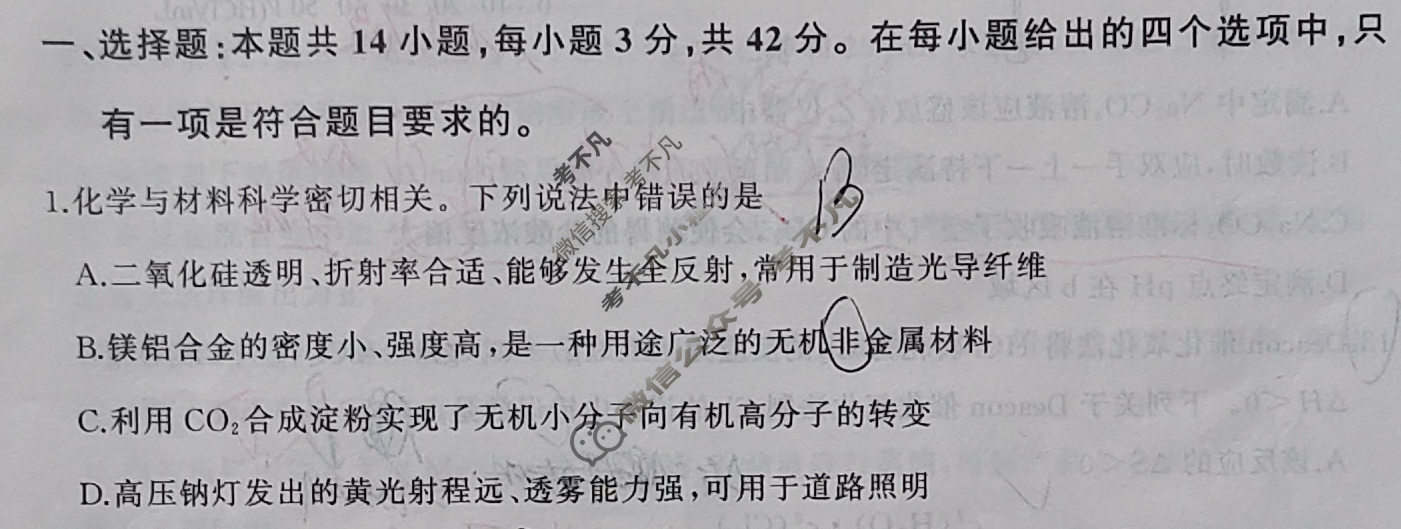 一、选择题:本题共 14 小题,每小题 3 分,共 42 分。在每小题给出的四个选项中,只
有一项是符合题目要求的。
1.化学与材料科学密切相关。下列说法中错误的是 B
A.二氧化硅透明、折射率合适、能够发生全反射,常用于制造光导纤维
B.镁铝合金的密度小、强度高,是一种用途广泛的无机非金属材料
C.利用 CO₂合成淀粉实现了无机小分子向有机高分子的转变
D.高压钠灯发出的黄光射程远、透雾能力强,可用于道路照明
考不凡
微信搜索 考不凡
考不凡小
微信公众号 考不凡